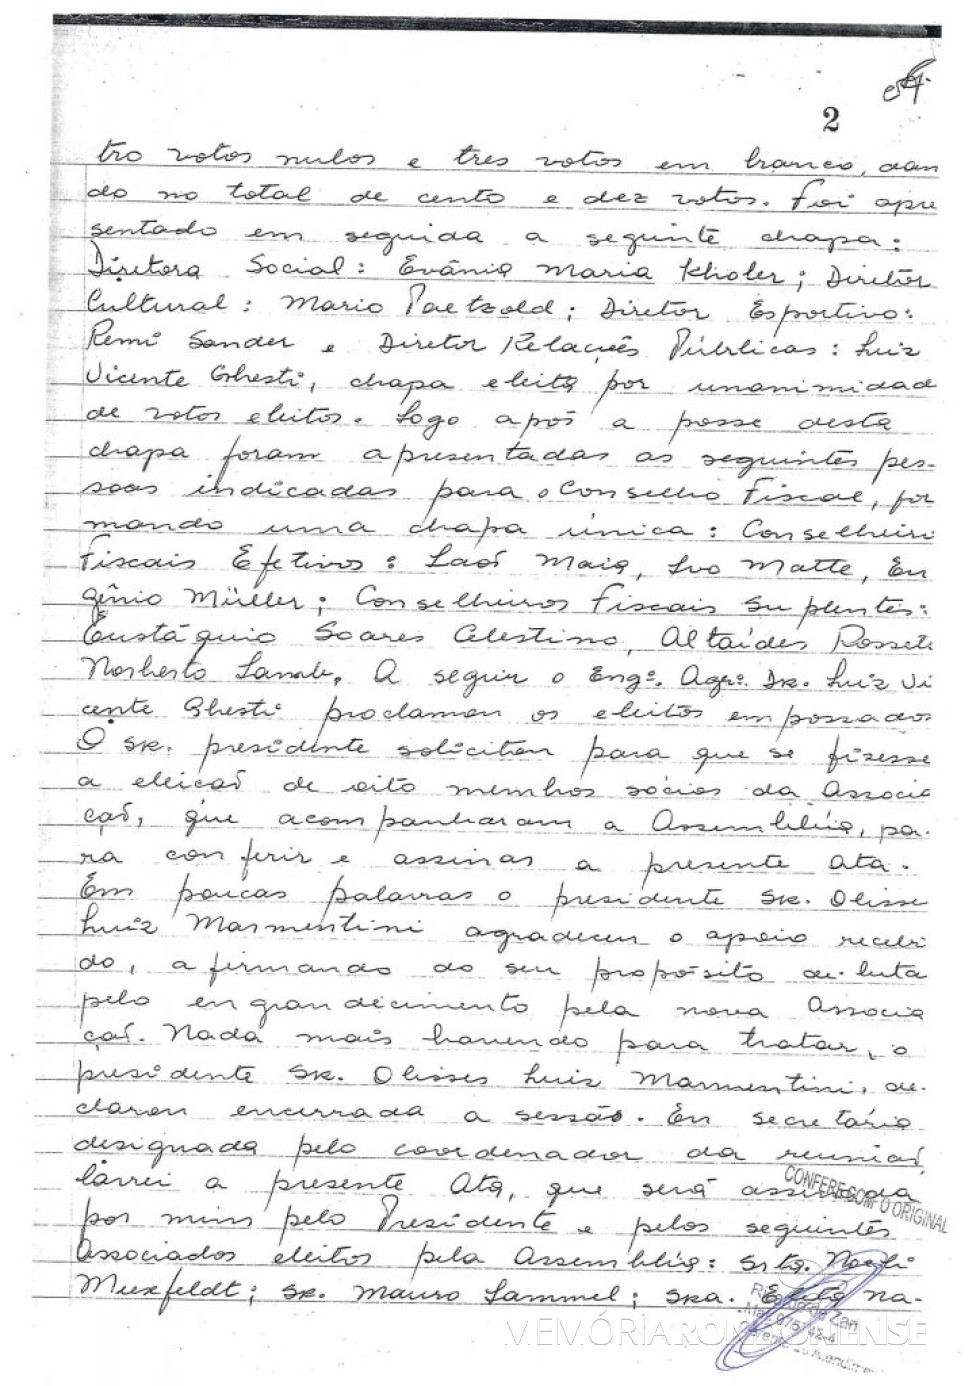 2
tro votos nulos e tres votos em branco, dan
do no total de cento e dez votos. Foi apre
sentado em seguida a seguinte chapa:
Diretora Social: Evânia Maria Kholer; Diretor
Cultural: Mario Paetzold; Diretor Esportivo:
Remi Sander e Diretor Relações Públicas: Luiz
Vicente Ghesti, chapa eleita por unanimidad
de votos eleitos. Logo após a posse desta
chapa foram apresentadas as seguintes pes-
soas indicadas para o Conselho Fiscal, for
mando uma chapa única: Conselheiro
Fiscais Efetivos: Laoí Maia, Ivo Matte, Eu
gênio Müller; Conselheiros Fiscais Suplentes:
Eustáquio Soares Celestino, Altaídes Rossete
Norberto Lamb. A seguir o Engº. Agrº. Dr. Luiz Vi
cente Ghesti proclamou os eleitos empossados
O Sr. presidente solicitou para que se fizesse
a eleição de oito membros sócios da Associa
ção, que acompanharam a Assembléia, pa-
ra conferir e assinar a presente ata.
Em poucas palavras o presidente Sr. Olisse
Luiz Marmentini agradeceu o apoio recebi
do, afirmando do seu propósito de luta
pelo engrandecimento pela nova Associa
ção. Nada mais havendo para tratar, o
presidente Sr. Olisses Luiz Marmentini, de-
clarou encerrada a sessão. Eu secretária
designada pelo coordenador da reunião,
lavrei a presente Ata, que será assinada
por mim pelo Presidente e pelos seguintes
Associados eleitos pela Assembléia: Srta. Noeli
Muxfeldt; Sr. Mauro Lammel; Sra. Edita Na-
CONFERE COM O ORIGINAL
MEMÓRIA RONDONENSE